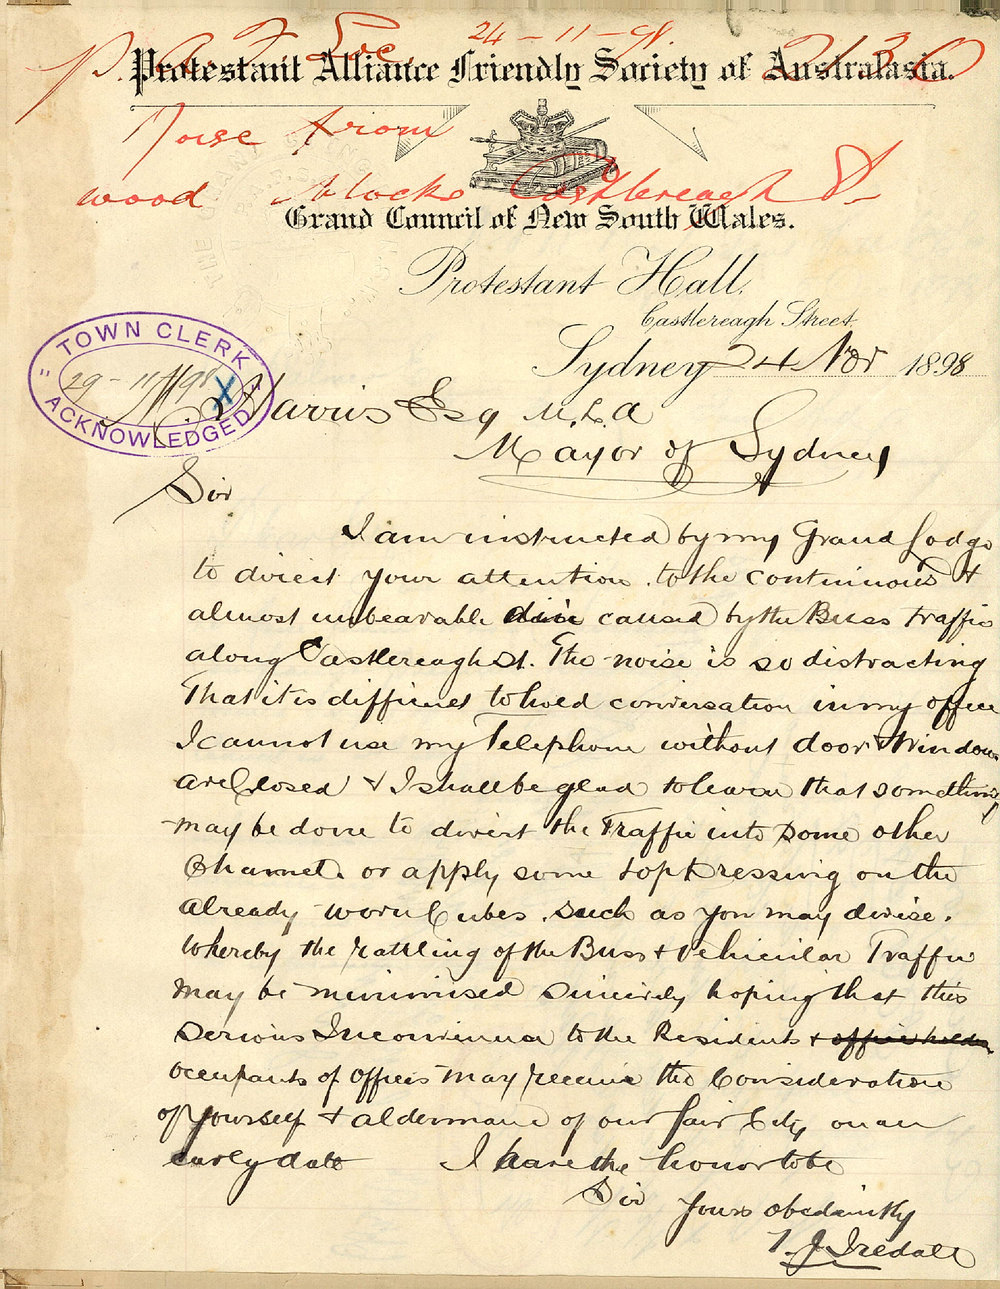 P. A. F. Soc 24-11-98. 2130
Protestant Alliance Friendly Society of Australasia.
Noise from
wood blocks Castlereagh St
Grand Council of New South Wales.
Protestant Hall.
Castlereagh Street
Sydney 24 Nov 1898
TOWN CLERK
29-11-98 X
ACKNOWLEDGED
Harris Esq M.L.A
Mayor of Sydney
Sir
I am instructed by my Grand Lodge
to direct your attention to the continuous &
almost unbearable din caused by the Buss traffic
along Castlereagh St. The noise is so distracting
That it is difficult to hold conversation in my office
I cannot use my Telephone without door & window
are Closed & I shall be glad to learn that something
may be done to divert the Traffic into some other
Channel. or apply some top dressing on the
already worn Cubes. such as you may devise.
whereby the rattling of the Buss & Vehicular Traffic
may be minimised sincerely hoping that this
serious Inconvenience to the Residents & office holders
occupants of offices may receive the Consideration
of yourself & aldermane of our fair City on an
early date I have the honor to be
Sir Yours obediently
T. J. Iredale